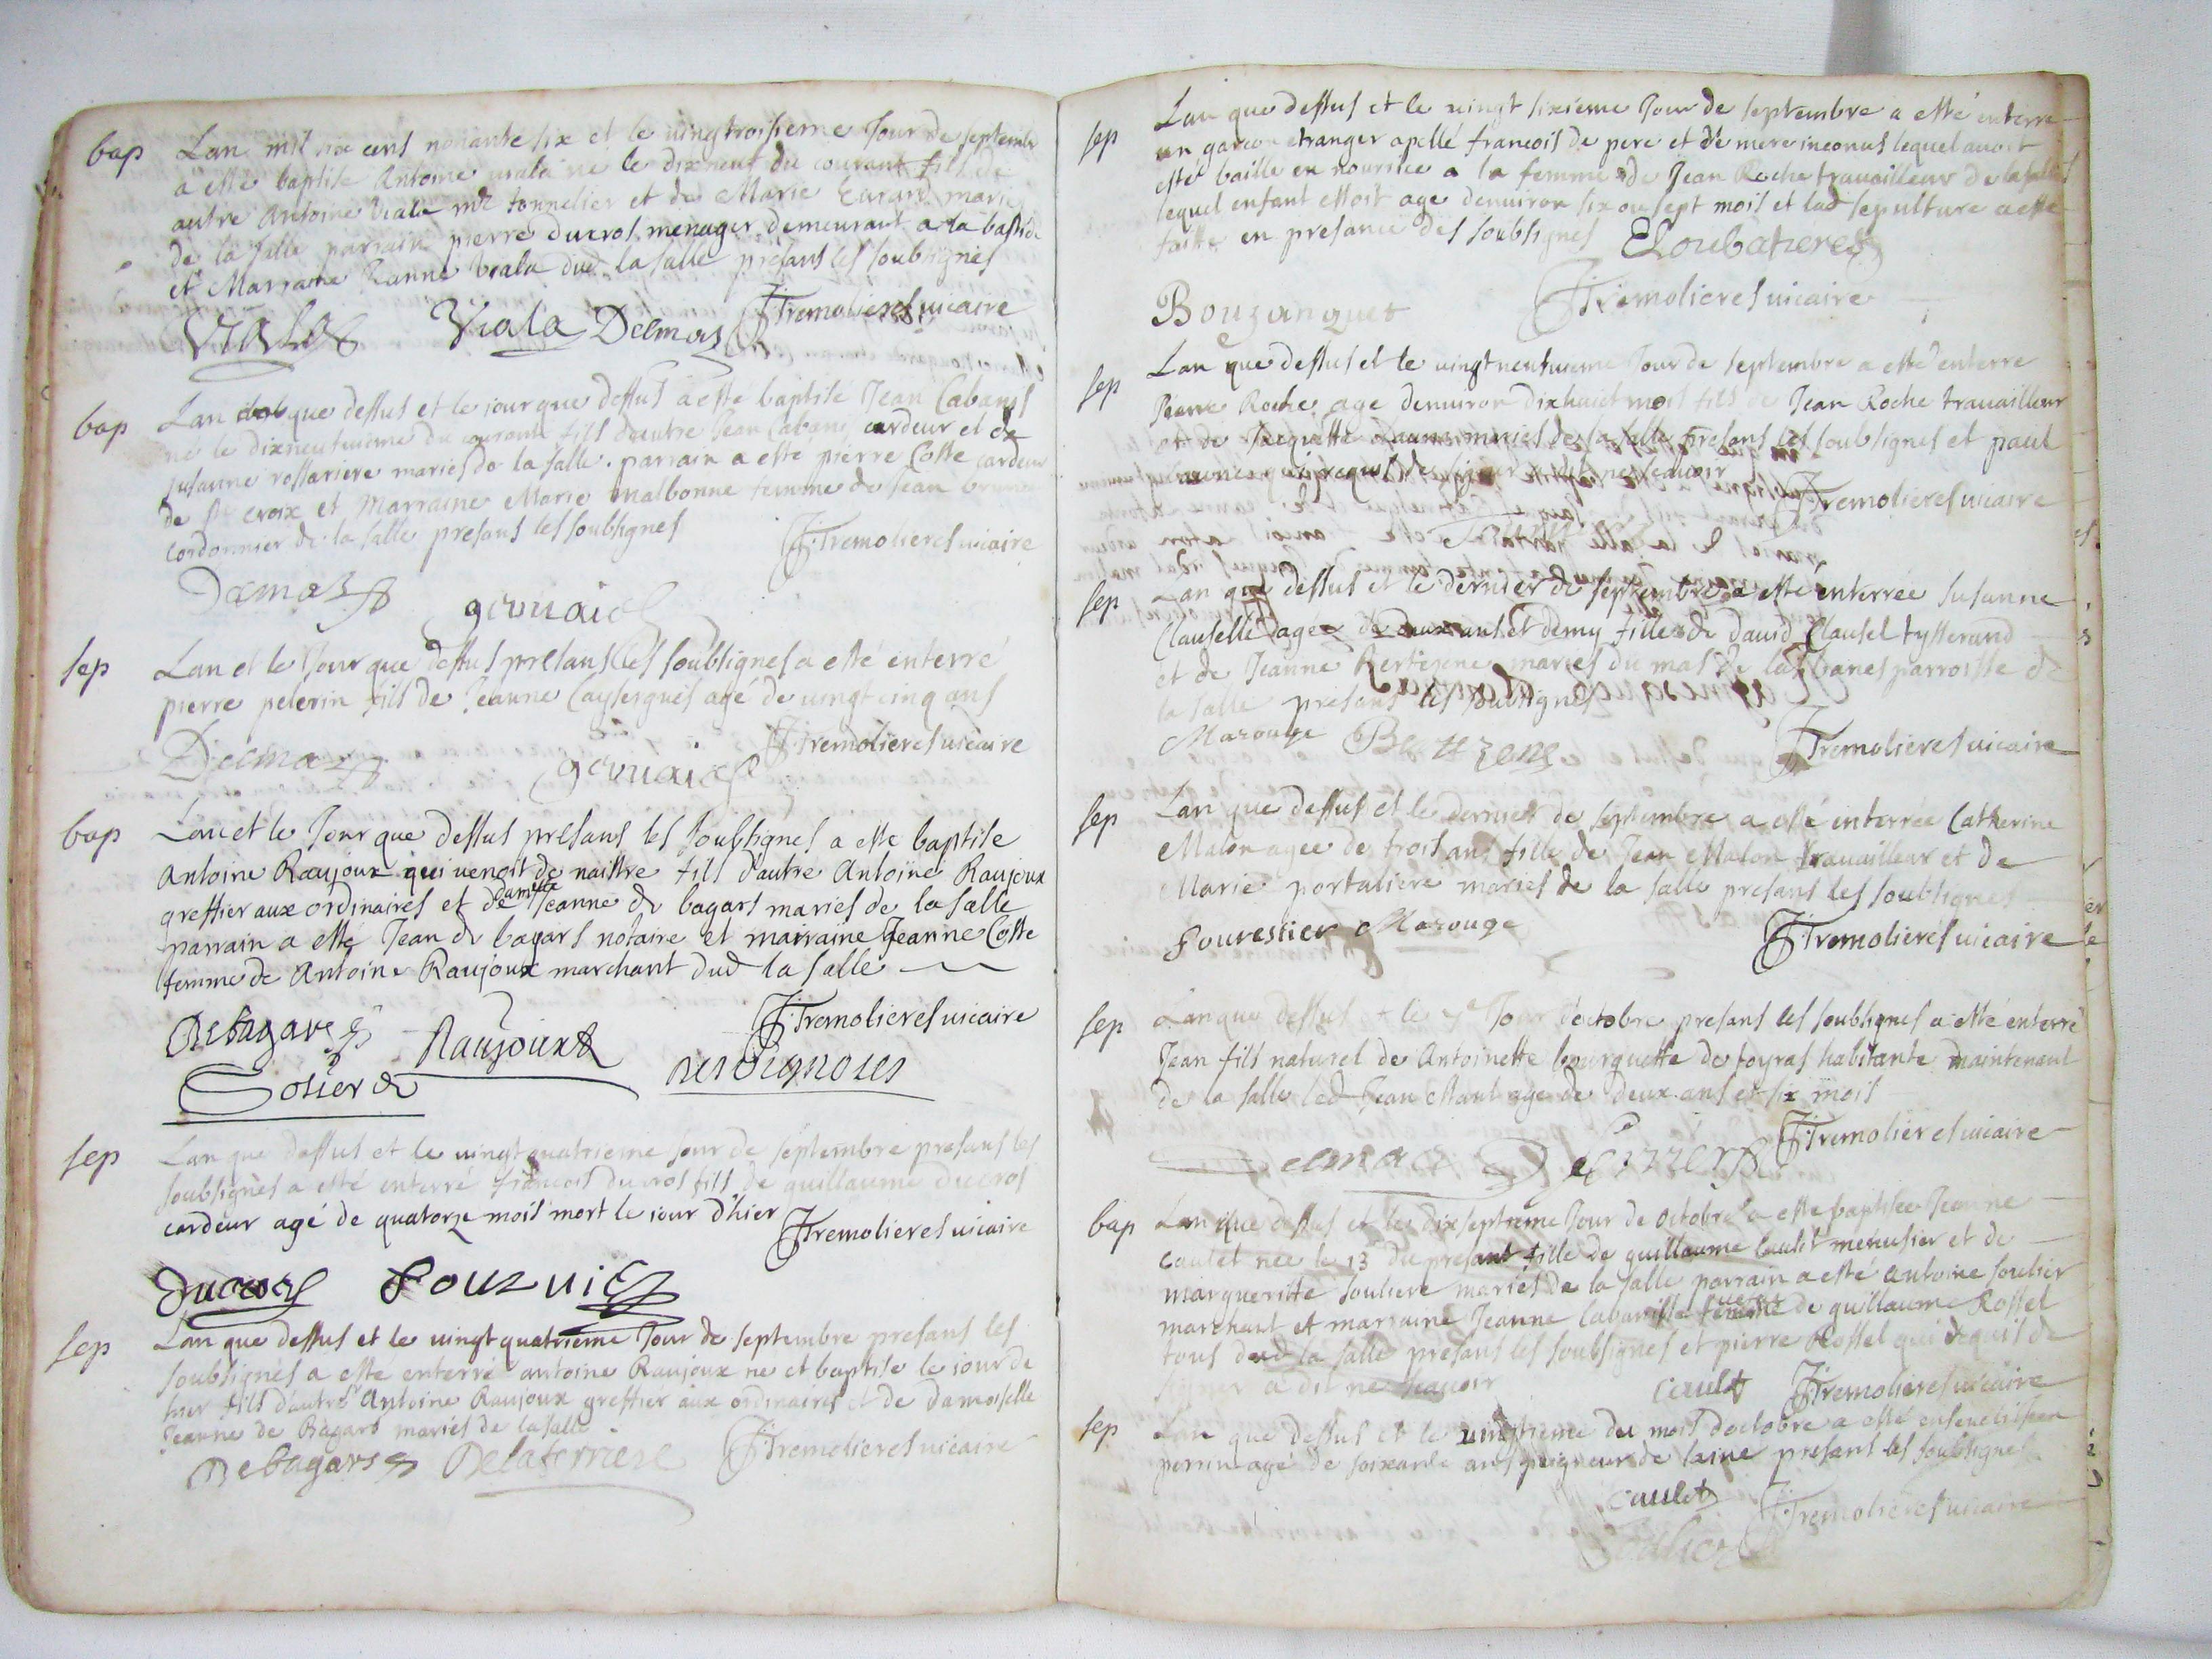 bap
Lan mil six cens nonante six et le vingtroisieme Jour de septembre
a esté baptise Antoine viala né le dixneuf du courant fils de
autre Antoine viala mre tonnelier et de Marie mariés
de la salle parrain pierre ducros menager demeurant a la bastide
et Marraine Jeanne viala dud la salle presans les soubsignés
Tremolieres vicaire
Viala Delmas
bap
Lan que dessus et le jour que dessus a esté baptisé Jean Cabanis
né le dixneufuieme du courant fils dautre Jean Cabanis cardeur et de
susanne rossariere mariés de la salle. parrain a esté pierre Coste cardeur
de ste croix et Marraine Marie malbonne femme de Jean
cordonnier de la salle presans les soubsignes
Tremolieres vicaire
Delmas gervais
sep
Lan et le Jour que dessus presans les soubsignes a esté enterré
pierre pelerin fils de Jeanne Caysergues agé de vingt cinq ans
Tremolieres vicaire
Delmas gervais
bap
Lan et le Jour que dessus presans les soubsignes a esté baptise
Antoine Raujoux qui venoit de naistre fils d'autre Antoine Raujoux
greffier aux ordinaires et de damlle Jeanne de bagars mariés de la salle
parrain a esté Jean de bagars notaire et mairaine Jeanne Coste
femme de Antoine Raujoux marchant dud la salle
Tremolieres vicaire
Debagars Raujoux
desvignoles
sep
Lan que dessus et le vingt quatrieme Jour de septembre presans les
soubsignés a esté enterré francois ducros fils de guillaume ducros
cardeur agé de quatorze mois mort le jour d'hier
Tremolieres vicaire
Ducros
sep
Lan que dessus et le vingt quatrieme Jour de septembre presans les
soubsignés a esté enterré antoine Raujoux né et baptise le jour de
hier fils d'autre Antoine Raujoux greffier aux ordinaires et de damoiselle
Jeanne de Bagars mariés de la salle
Debagars Delaferriere Tremolieres vicaire
sep
Lan que dessus et le vingt sixieme Jour de septembre a esté enterré
un garcon etranger apellé francois de pere et de mere inconus lequel avoit
esté baille en nourrice a la femme de Jean Roche travailleur de la salle
lequel enfant estoit age denviron six ou sept mois et lad sepulture a esté
faitte en presance des soubsignes
Loubatieres
Bouzanquet Tremolieres vicaire
sep
Lan que dessus et le vingtneufuieme Jour de septembre a esté enterré
Pierre Roche age denviron dixhuict mois fils de Jean Roche travailleur
et de Jacquette Laune mariés de la salle presans les soubsignes et paul
Laune qui requis de signer a dit ne sçavoir
Tremolieres vicaire
sep
Lan que dessus et le dernier de septembre a esté enterrée susanne
Clauselle agée de deux ans et demy fille de david Clausel tysserand
et de Jeanne mariés du mas de parroisse de
la salle presans les soubsignes
Marouge Tremolieres vicaire
sep
Lan que dessus et le dernier de septembre a esté enterrée Catherine
Malon agée de trois ans fille de Jean Malon travailleur et de
Marie portaliere mariés de la salle presans les soubsignes
fourestier Marouge
Tremolieres vicaire
sep
Lan que dessus et le 7e Jour d'octobre presans les soubsignes a esté enterré
Jean fils naturel de Antoinette bourguette de soyras habitante maintenant
de la salle led Jean estant age de deux ans et six mois
Tremolieres vicaire
Delmas
bap
Lan que dessus et le dixseptieme Jour de octobre a esté baptisée Jeanne
caulet née le 13 du presant fille de guillaume Caulet menusier et de
margueritte souliere mariés de la salle parrain a esté antoine soulier
marchant et marraine Jeanne labarille de guillaume Rossel
tous dud la salle presans les soubsignes et pierre Rossel qui requis de
signer a dit ne sçavoir
Caulet Tremolieres vicaire
sep
Lan que dessus et le vingtieme du mois doctobre a esté enseveli Jean
perrin agé de soixante ans peigneur de laine presans les soubsignes
caulet
Tremolieres vicaire
soulier